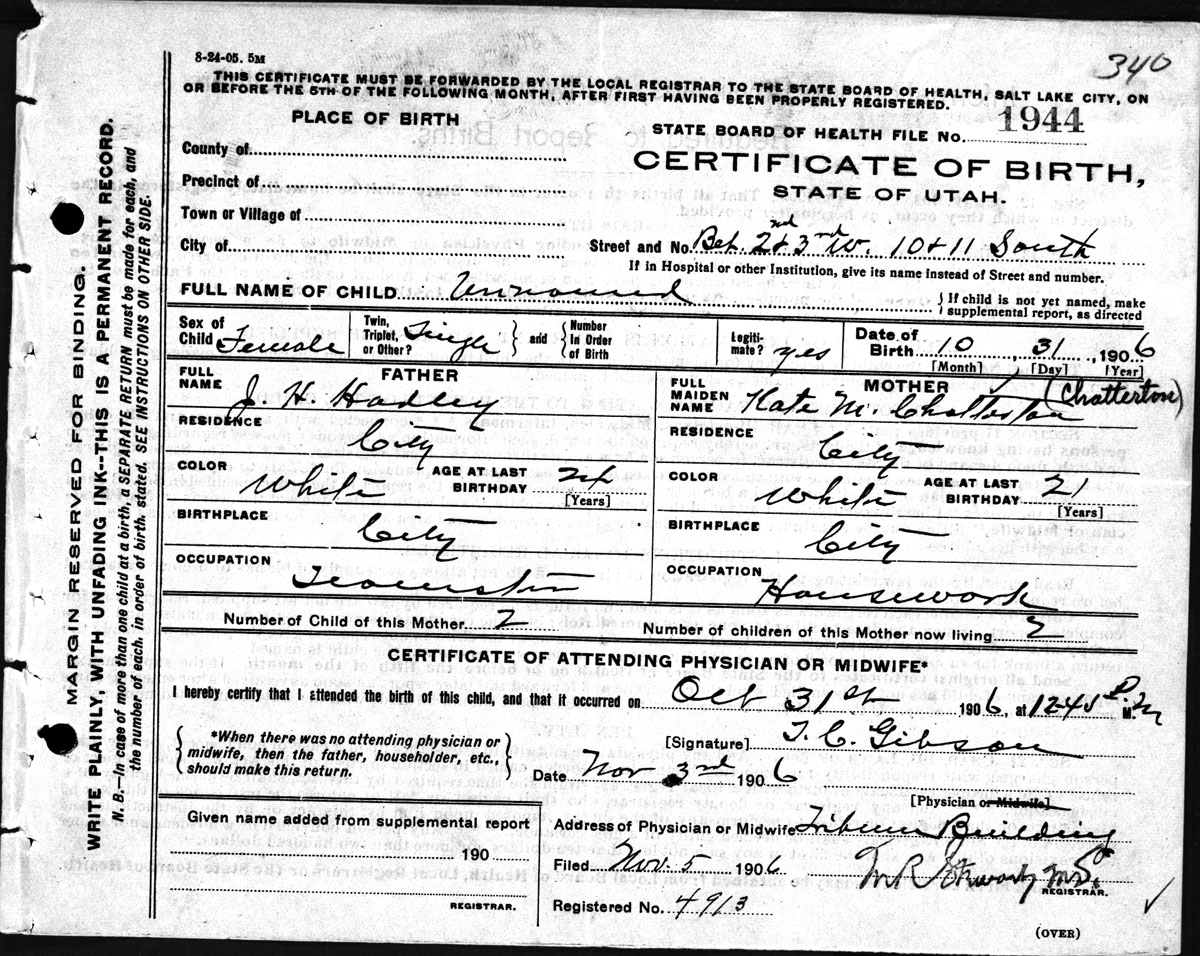 8-24-05. 5M
340
THIS CERTIFICATE MUST BE FORWARDED BY THE LOCAL REGISTRAR TO THE STATE BOARD OF HEALTH, SALT LAKE CITY, ON
OR BEFORE THE 5TH OF THE FOLLOWING MONTH, AFTER FIRST HAVING BEEN PROPERLY REGISTERED.
PLACE OF BIRTH
STATE BOARD OF HEALTH FILE No. 1944
County of
CERTIFICATE OF BIRTH,
Precinct of
STATE OF UTAH.
Town or Village of
City of
Street and No. Bet. 2nd & 3rd W. 10 & 11 South
If in Hospital or other Institution, give its name instead of Street and number.
FULL NAME OF CHILD Unnamed
{If child is not yet named, make
supplemental report, as directed
Sex of Child Female
Twin, Triplet, or Other? Single
} and {
Number In Order of Birth
Legiti-mate? yes
Date of Birth 10, 31, 1906
[Month] [Day] [Year]
FATHER
FULL NAME J. H. Hadley
RESIDENCE City
COLOR White
AGE AT LAST BIRTHDAY 24
[Years]
BIRTHPLACE City
OCCUPATION
MOTHER
(Chatterton)
FULL MAIDEN NAME Kate M. Chatterton
RESIDENCE City
COLOR White
AGE AT LAST BIRTHDAY 21
[Years]
BIRTHPLACE City
OCCUPATION Housework
Number of Child of this Mother 2
Number of children of this Mother now living 2
CERTIFICATE OF ATTENDING PHYSICIAN OR MIDWIFE*
I hereby certify that I attended the birth of this child, and that it occurred on Oct 31st 1906, at 1245 P. M.
{*When there was no attending physician or
midwife, then the father, householder, etc.,
should make this return.}
[Signature] T. C. Gibson
Date Nov 3rd 1906
[Physician or Midwife]
Given name added from supplemental report
190
REGISTRAR.
Address of Physician or Midwife Tribune Building
Filed Nov. 5 1906
M.D.
REGISTRAR.
Registered No. 4913
(OVER)
MARGIN RESERVED FOR BINDING.
WRITE PLAINLY, WITH UNFADING INK--THIS IS A PERMANENT RECORD.
N. B.—In case of more than one child at a birth, a SEPARATE RETURN must be made for each, and
the number of each, in order of birth, stated. SEE INSTRUCTIONS ON OTHER SIDE.